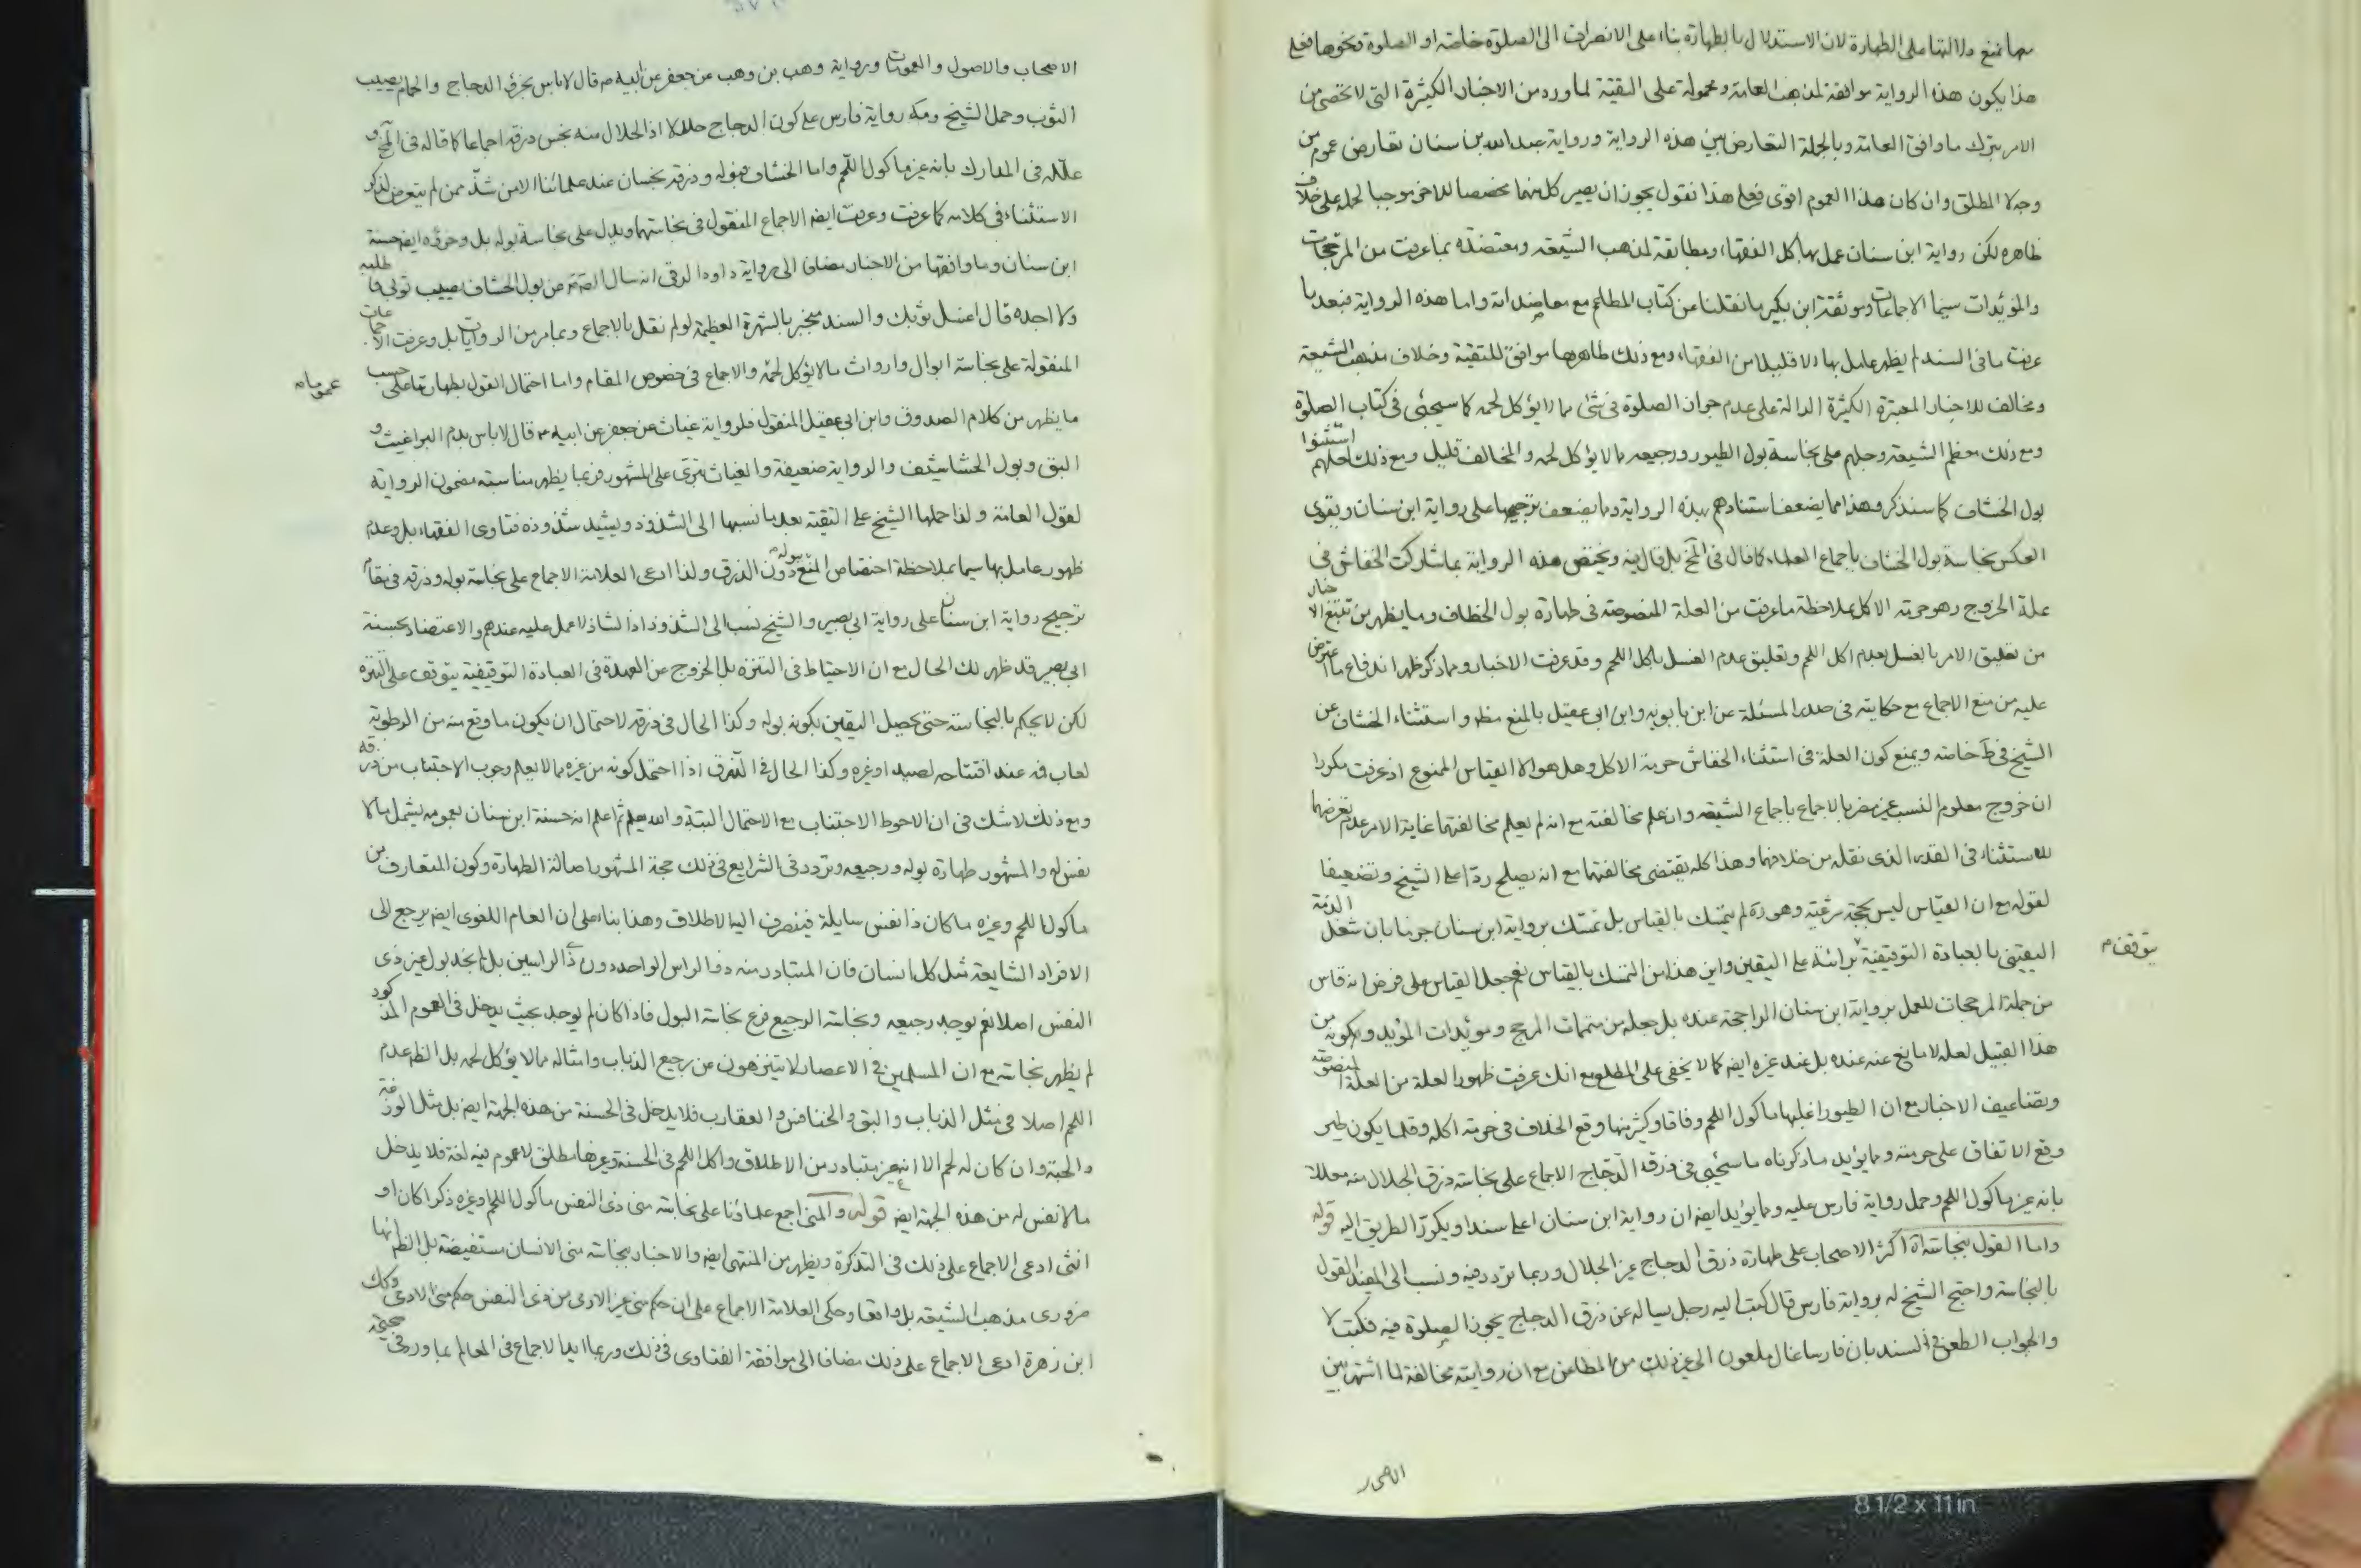 بها فنمنع دلالتها على الطهارة لان الاستدلال بالطهارة بناء على الانصراف الى الصلوة خاصة او الصلوة ونحوها فعلى
هذا يكون هذه الرواية موافقة لمذهب العامة ومحمولة على التقية لما ورد من الاخبار الكثيرة التى لا تحصى من
الامر بترك ما وافق العامة وبالجملة التعارض بين هذه الرواية ورواية عبد الله بن سنان تعارض عموم من
وجه لا المطلق وان كان هذا العموم اقوى فعلى هذا نقول يجوز ان يصير كل منهما مخصصا للاخر موجبا لحمله على خلاف
ظاهره لكن رواية ابن سنان عمل بها كل الفقهاء ومطابقة لمذهب الشيعة ومعتضدة بما عرفت من المرجحات
والمؤيدات سيما الاجماعات وموثقة ابن بكير ما نقلنا عن كتاب المطاعم مع معاضداته واما هذه الرواية فبعد ما
عرفت ما فى السند لم يظهر عامل بها الا قليلا من الفقهاء ومع ذلك ظاهرها موافق للتقية وخلاف مذهب الشيعة
ومخالف للاخبار المعتبرة الكثيرة الدالة على عدم جواز الصلوة فى شئ مما لا يؤكل لحمه كما سيجئى فى كتاب الصلوة
ومع ذلك معظم الشيعة وجلهم على نجاسة بول الطيور ورجيعه مما لا يؤكل لحمه والمخالف قليل ومع ذلك كلهم استثنوا
بول الخشاف كما سنذكر وهذا مما يضعف استنادهم بهذه الرواية ومما يضعف ترجيحها على رواية ابن سنان ويقوى
العكس نجاسة بول الخشاف باجماع العلماء كما قال فى المخ بل قال فيه ويختص هذه الرواية بما شاركت الخفاش فى
علة الخروج وهو حرمة الاكل بملاحظة ما عرفت من العلة المنصوصة فى طهارة بول الخطاف وما يظهر من تتبع الاخبار
من تعليق الامر بالغسل بعدم اكل اللحم وتعليق عدم الغسل باكل اللحم وقد عرفت الاخبار ومما ذكر ظهر اندفاع ما اعترض
عليه من منع الاجماع مع حكايته فى صدر المسئلة عن ابن بابويه وابن ابى عقيل بالمنع مطر واستثناء الخشاف عن
الشيخ فى ط خاصة ويمنع كون العلة فى استثناء الخفاش حرمة الاكل وهل هو الا القياس الممنوع اذ عرفت مكررا
ان خروج معلوم النسب غير مضر بالاجماع باجماع الشيعة وان علم مخالفته مع انه لم يعلم مخالفتهما غاية الامر عدم تعرضهما
للاستثناء فى القدر الذى نقله من خلافهما وهذا كله يقتضى مخالفتهما مع انه يصلح ردا على الشيخ وتضعيفا
لقوله مع ان القياس ليس بحجة شرعية وهو ره لم يتمسك بالقياس بل تمسك برواية ابن سنان جزما بان شغل الذمة
اليقينى بالعبادة التوقيفية يتوقف برائته على اليقين واين هذا من التمسك بالقياس نعم جعل القياس على فرض انه قاس
من جملة المرجحات للعمل برواية ابن سنان الراجحة عنده بل جعله من متممات المرجح ومؤيدات المؤيد وكونه من
هذا القبيل لعله لا مانع عنه عنده بل عند غيره ايضر كما لا يخفى على المطلع مع انك عرفت ظهور العلة من العلة المنصوصة
وتضاعيف الاخبار مع ان الطيور اغلبها ماكول اللحم وفاقا وكثير منها وقع الخلاف فى حرمة اكله وقلما يكون طير
وقع الاتفاق على حرمته ومما يؤيد ما ذكرناه ما سيجئى فى ذرق الدجاج الاجماع على نجاسة ذرق الجلال منه معللا
بانه غير ماكول اللحم وحمل رواية فارس عليه ومما يؤيد ايضر ان رواية ابن سنان اعلى سندا ويكرر الطريق اليه قوله
واما القول بنجاسة اه اكثر الاصحاب على طهارة ذرق الدجاج غير الجلال وربما تردد فيه ونسب الى المفيد القول
بالنجاسة واحتج الشيخ له برواية فارس قال كتب اليه رجل يساله عن ذرق الدجاج يجوز الصلوة فيه فكتب لا
والجواب الطعن فى السند بان فارسا غال ملعون الى غير ذلك من المطاعن مع ان روايته مخالفة لما اشتهر بين
الاصحاب والاصول والعمومات ورواية وهب بن وهب عن جعفر عن ابيه ع قال لا باس بخرؤ الدجاج والحمام يصيب
الثوب وحمل الشيخ ره رواية فارس على كون الدجاج جلالا اذ الجلال منه نجس ذرقه اجماعا كما قاله فى المخ و
علله فى المدارك بانه غير ماكول اللحم واما الخشاف فبوله وذرقه نجسان عند علمائنا الا من شذ ممن لم يتعرض لذكر
الاستثناء فى كلامه كما عرفت وعرفت ايضر الاجماع المنقول فى نجاستهما ويدل على نجاسة بوله بل وخرؤه ايضر حسنة
ابن سنان وما وافقها من الاخبار مضافا الى رواية داود الرقى انه سال الص ع عن بول الخشاف يصيب ثوبى فاطلبه
ولا اجده قال اغسل ثوبك والسند منجبر بالشهرة العظيمة لو لم نقل بالاجماع وبما مر من الروايات بل وعرفت الاجماعات
المنقولة على نجاسة ابوال وارواث ما لا يؤكل لحمه والاجماع فى خصوص المقام واما احتمال القول بطهارتها على حسب
عموماته
ما يظهر من كلام الصدوق وابن ابى عقيل المنقول فلرواية غياث عن جعفر عن ابيه ع قال لا باس بدم البراغيث و
البق وبول الخشاشيف والرواية ضعيفة والغياث بترى على المشهور فربما يظهر مناسبة مضمون الرواية
لقول العامة ولذا حملها الشيخ على التقية بعد ما نسبها الى الشذوذ ويشيد شذوذه فتاوى الفقهاء بل وعدم
ظهور عامل بها سيما بملاحظة اختصاص المنع ببوله دون الذرق ولذا ادعى العلامة الاجماع على نجاسة بوله وذرقه فى مقام
ترجيح رواية ابن سنان على رواية ابى بصير والشيخ نسب الى الشذوذ اذ الشاذ لا عمل عليه عندهم والاعتضاد بحسنة
ابى بصير قد ظهر لك الحال مع ان الاحتياط فى التنزه بل الخروج عن العهدة فى العبادة التوقيفية يتوقف على التنزه
لكن لا يحكم بالنجاسة حتى يحصل اليقين بكونه بوله وكذا الحال فى ذرقه لاحتمال ان يكون ما وقع منه من الرطوبة
لعاب فمه عند افتتاحه لصيد او غيره وكذا الحال فى الذرق اذا احتمل كونه من غيره مما لا يعلم وجوب الاجتناب من ذرقه
ومع ذلك لا شك فى ان الاحوط الاجتناب مع الاحتمال البتة والله يعلم ثم اعلم ان حسنة ابن سنان بعمومه يشمل ما لا
نفس له والمشهور طهارة بوله ورجيعه وتردد فى الشرايع فى ذلك حجة المشهور اصالة الطهارة وكون المتعارف من
ماكول اللحم وغيره ما كان ذا نفس سايلة فينصرف اليه الاطلاق وهذا بناء على ان العام اللغوى ايضر يرجع الى
الافراد الشايعة مثل كل انسان فان المتبادر منه ذو الراس الواحد دون ذى الراسين بل لم نجد بول غير ذى
النفس اصلا نعم يوجد رجيعه ونجاسة الرجيع فرع نجاسة البول فاذا كان لم يوجد بحيث يدخل فى العموم المذكور
لم يظهر نجاسته مع ان المسلمين فى الاعصار لا يتنزهون عن رجيع الذباب وامثاله مما لا يؤكل لحمه بل الظر عدم
اللحم اصلا فى مثل الذباب والبق والخنافس والعقارب فلا يدخل فى الحسنة من هذه الجهة ايضر بل مثل الوزغة
والحية وان كان له لحم الا انه غير متبادر من الاطلاق واكل اللحم فى الحسنة وغيرها مطلق لا عموم فيه لغة فلا يدخل
ما لا نفس له من هذه الجهة ايضر قوله والمنى اجمع علماؤنا على نجاسة منى ذى النفس ماكول اللحم وغيره ذكرا كان او
انثى ادعى الاجماع على ذلك فى التذكرة ويظهر من المنتهى ايضر والاخبار بنجاسة منى الانسان مستفيضة بل الظر انها
ضرورى مذهب الشيعة بل وافقا وحكى العلامة الاجماع على ان حكم منى غير الادمى من ذى النفس حكم منى الادمى وكك
ابن زهرة ادعى الاجماع على ذلك مضافا الى موافقة الفتاوى فى ذلك وربما ايد الاجماع فى المعالم بما ورد فى صحيحة